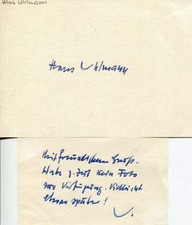 Hans Uhlmann
Hans Uhlmann
Mit freundlichem Gruß.
Habe z. Zeit kein Foto
zur Verfügung. Vielleicht
etwas später!
U.